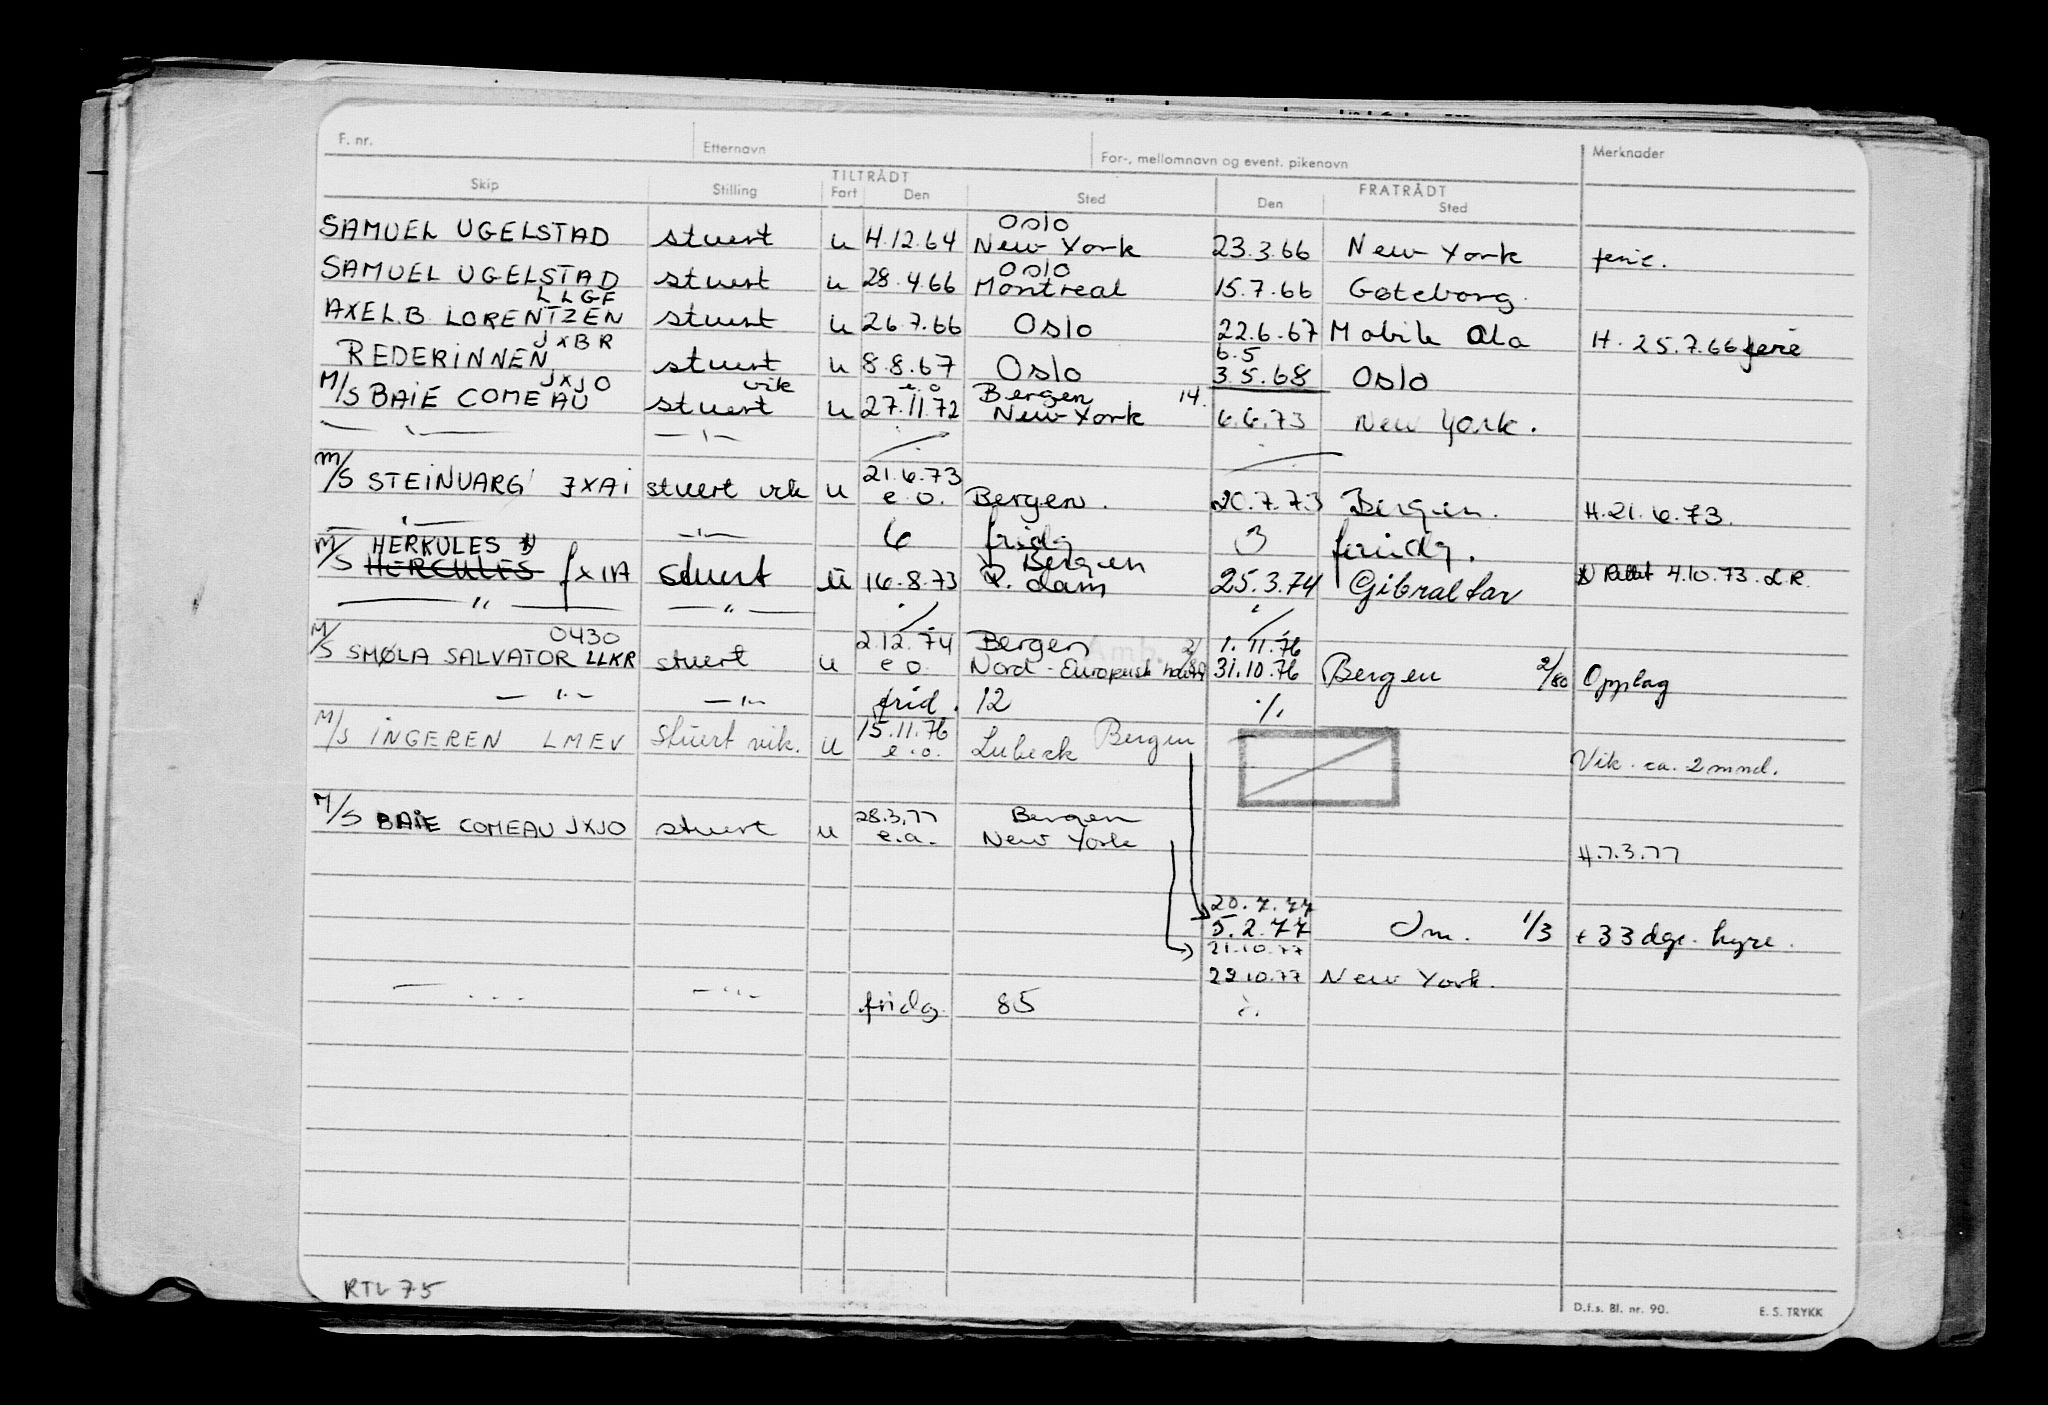 F. nr. Etternavn For-, mellomnavn og event. pikenavn Merknader
TILTRÅDT FRATRÅDT
Skip Stilling Fart Den Sted Den Sted
Oslo
SAMUEL UGELSTAD stuert u 4.12.64 New York 23.3.66 New York ferie.
Oslo
SAMUEL UGELSTAD stuert u 28.4.66 Montreal 15.7.66 Gøteborg.
LLGF
AXEL.B LORENTZEN stuert u 26.7.66 Oslo 22.6.67 Mobile Ala H. 25.7.66 ferie
JXBR 6.5
REDERINNEN stuert u 8.8.67 Oslo 3.5.68 Oslo
JXJO vik e.o Bergen 14.
M/S BAIE COMEAU stuert u 27.11.72 New York 6.6.73 New York.
— " — — " —
21.6.73
M/S STEINVARG JXAI stuert vik u e.o. Bergen. 20.7.73 Bergen. H.21.6.73.
— " — — " — 6 fridg 3 feriedg.
HERKULES Bergen
M/S HERCULES JXIA stuert u 16.8.73 R.dam 25.3.74 Gibraltar Rettet 4.10.73. L.R.
— " — — " — ./. ./.
0430 2.12.74 Bergen 2/ 1.11.76
M/S SMØLA SALVATOR LLKR stuert u e.o. Nord-Europeisk havn 80 31.10.76 Bergen 2/80 Opplag
— " — — " — frid. 12 ./.
15.11.76 Bergen
M/S INGEREN LMEV stuert vik. u e.o. Lubeck Vik. ca. 2 mnd.
28.3.77 Bergen
M/S BAIE COMEAU JXJO stuert u e.o. New York H.7.3.77
5.2.77 1/3 + 33 dgr. hyre.
21.10.77
22.10.77 New York.
— " — — " — fridg 85 ./.
RTV 75
D.f.s. Bl. nr. 90. E. S. TRYKK